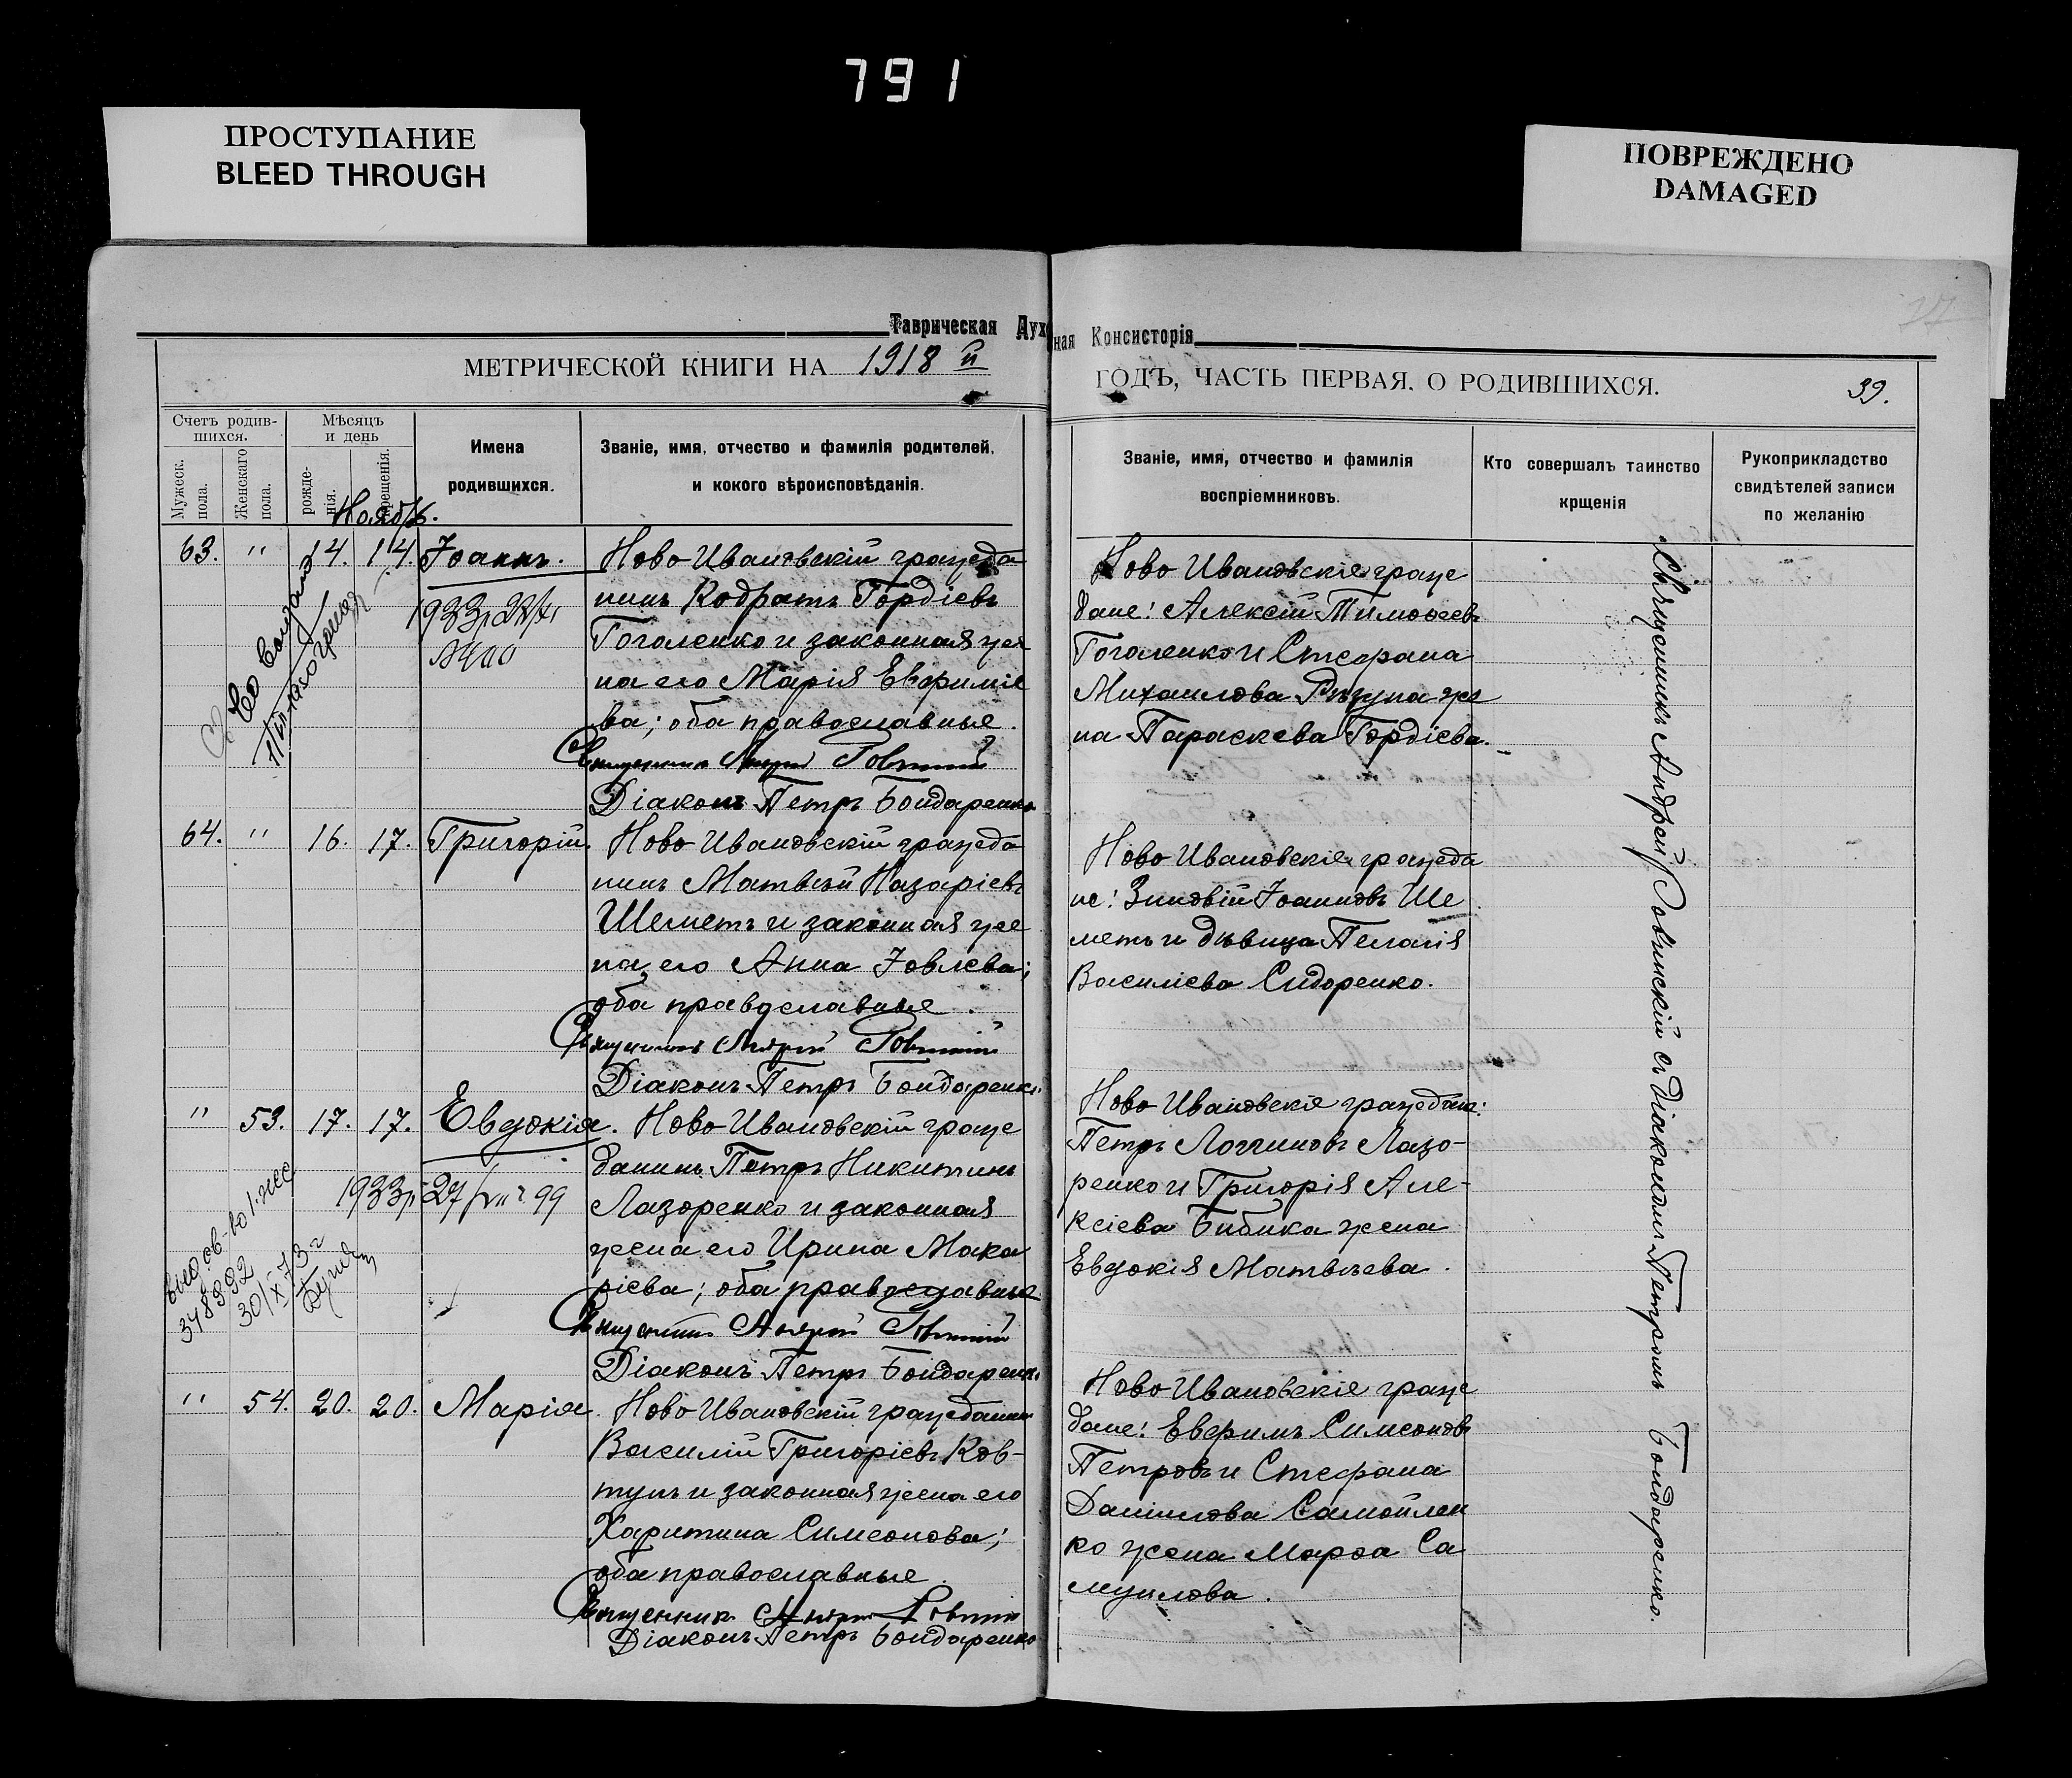 791
ПРОСТУПАНИЕ
BLEED THROUGH
ПОВРЕЖДЕНО
DAMAGED
Таврическая Духовная Консисторія
МЕТРИЧЕСКОЙ КНИГИ НА 1918 й
ГОДЪ, ЧАСТЬ ПЕРВАЯ, О РОДИВШИХСЯ.
39.
Счетъ родив-
шихся.
Мужеск.
пола.
Женскаго
пола.
Мѣсяцъ
и день
рожде-
нія.
крещенія.
Имена
родившихся.
Званіе, имя, отчество и фамилія родителей,
и кокого вѣроисповѣданія.
Званіе, имя, отчество и фамилія
воспріемниковъ.
Кто совершалъ таинство
крщенія
Рукоприкладство
свидѣтелей записи
по желанію
Нояб.
63. " 14. 14. Іоаннъ.
Ново Ивановскій гражда
нинъ Кодратъ Гордіевъ
Гоголенко и законная же
на его Марія Евфиміе
ва; оба православные.
Священникъ Андрей
Діаконъ Петръ Бондаренко
Ново Ивановскіе граж
дане: Алексій Тимоѳеевъ
Гоголенко и Стефана
Михаилова жe
на Параскева Гордіева.
1933
64. " 16. 17. Григорій.
Ново Ивановскій гражда
нинъ Матвѣй Назаріевъ
Шеметъ и законная же
на его Анна Іовлева;
оба православные.
Священникъ Андрей
Діаконъ Петръ Бондаренко
Ново Ивановскіе гражда
не: Зиновій Іоанновъ Ше
метъ и дѣвица Пелагія
Василіева Сидоренко.
" 53. 17. 17. Евдокія.
Ново Ивановскій граж
данинъ Петръ Никитинъ
Лазоренко и законная
жена его Ирина Мака
ріева; оба православные
Священникъ Андрей
Діаконъ Петръ Бондаренко
Ново Ивановскіе граждане:
Петръ Логгиновъ Лазо-
ренко и Григорія Але-
ксіева Бибика жена
Евдокія Матвѣева.
1933 27/VIII 99
30/X 73 г
" 54. 20. 20. Марія.
Ново Ивановскій гражданинъ
Василій Григоріевъ Ков-
тунъ и законная жена его
Харитина Симеонова;
оба православные.
Священникъ Андрей
Діаконъ Петръ Бондаренко
Ново Ивановскіе граж
дане: Евфимъ Симеоновъ
Петровъ и Стефана
Даніилова Самойлен
ко жена Марѳа Са
муилова.
Священникъ Андрей съ Діакономъ Петромъ Бондаренко.